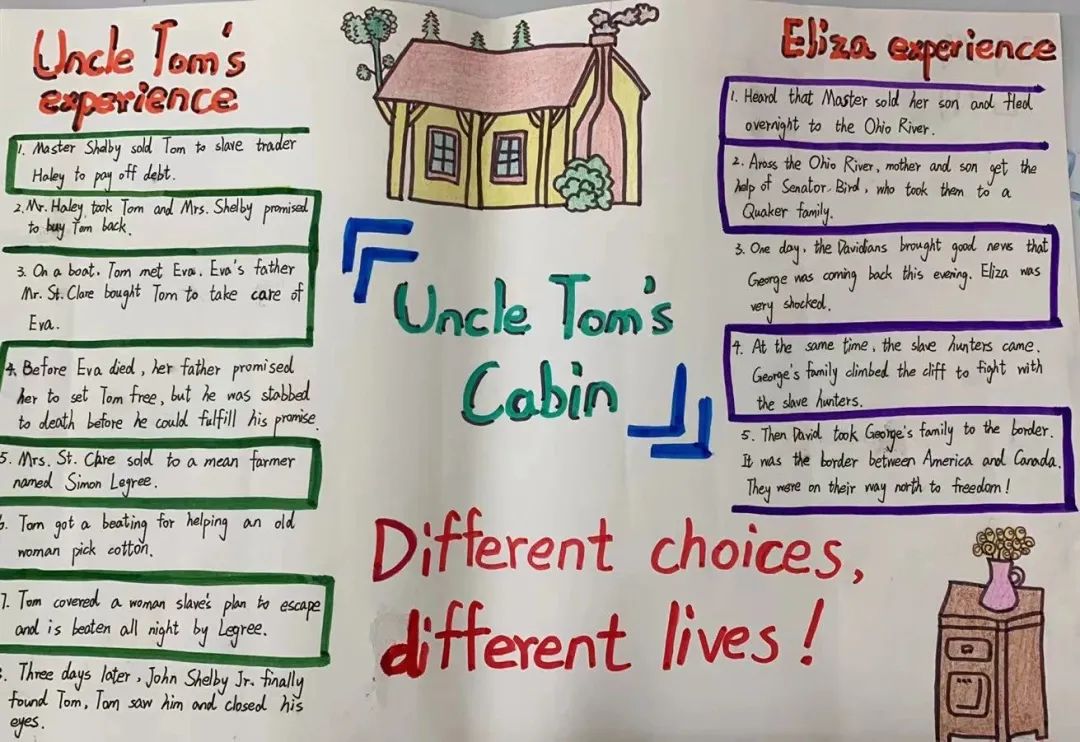 Uncle Tom's
experience
1. Master Shelby sold Tom to slave trader
Haley to pay off debt.
2. Mr. Haley took Tom and Mrs. Shelby promised
to buy Tom back.
3. On a boat. Tom met Eva. Eva's father
Mr. St. Clare bought Tom to take care of
Eva.
4. Before Eva died, her father promised
her to set Tom free, but he was stabbed
to death before he could fulfill his promise.
5. Mrs. St. Clare sold to a mean farmer
named Simon Legree.
6. Tom got a beating for helping an old
woman pick cotton.
7. Tom covered a woman slave's plan to escape
and is beaten all night by Legree.
Three days later, John Shelby Jr. finally
found Tom, Tom saw him and closed his
eyes.
『Uncle Tom's
Cabin』
Different choices,
different lives!
Eliza experience
1. Heard that Master sold her son and fled
overnight to the Ohio River.
2. Aross the Ohio River, mother and son get the
help of Senator. Bird, who took them to a
Quaker family.
3. One day, the Davidians brought good news that
George was coming back this evening. Eliza was
very shocked.
4. At the same time, the slave hunters came.
George's family climbed the cliff to fight with
the slave hunters.
5. Then David took George's family to the border.
It was the border between America and Canada.
They were on their way north to freedom!